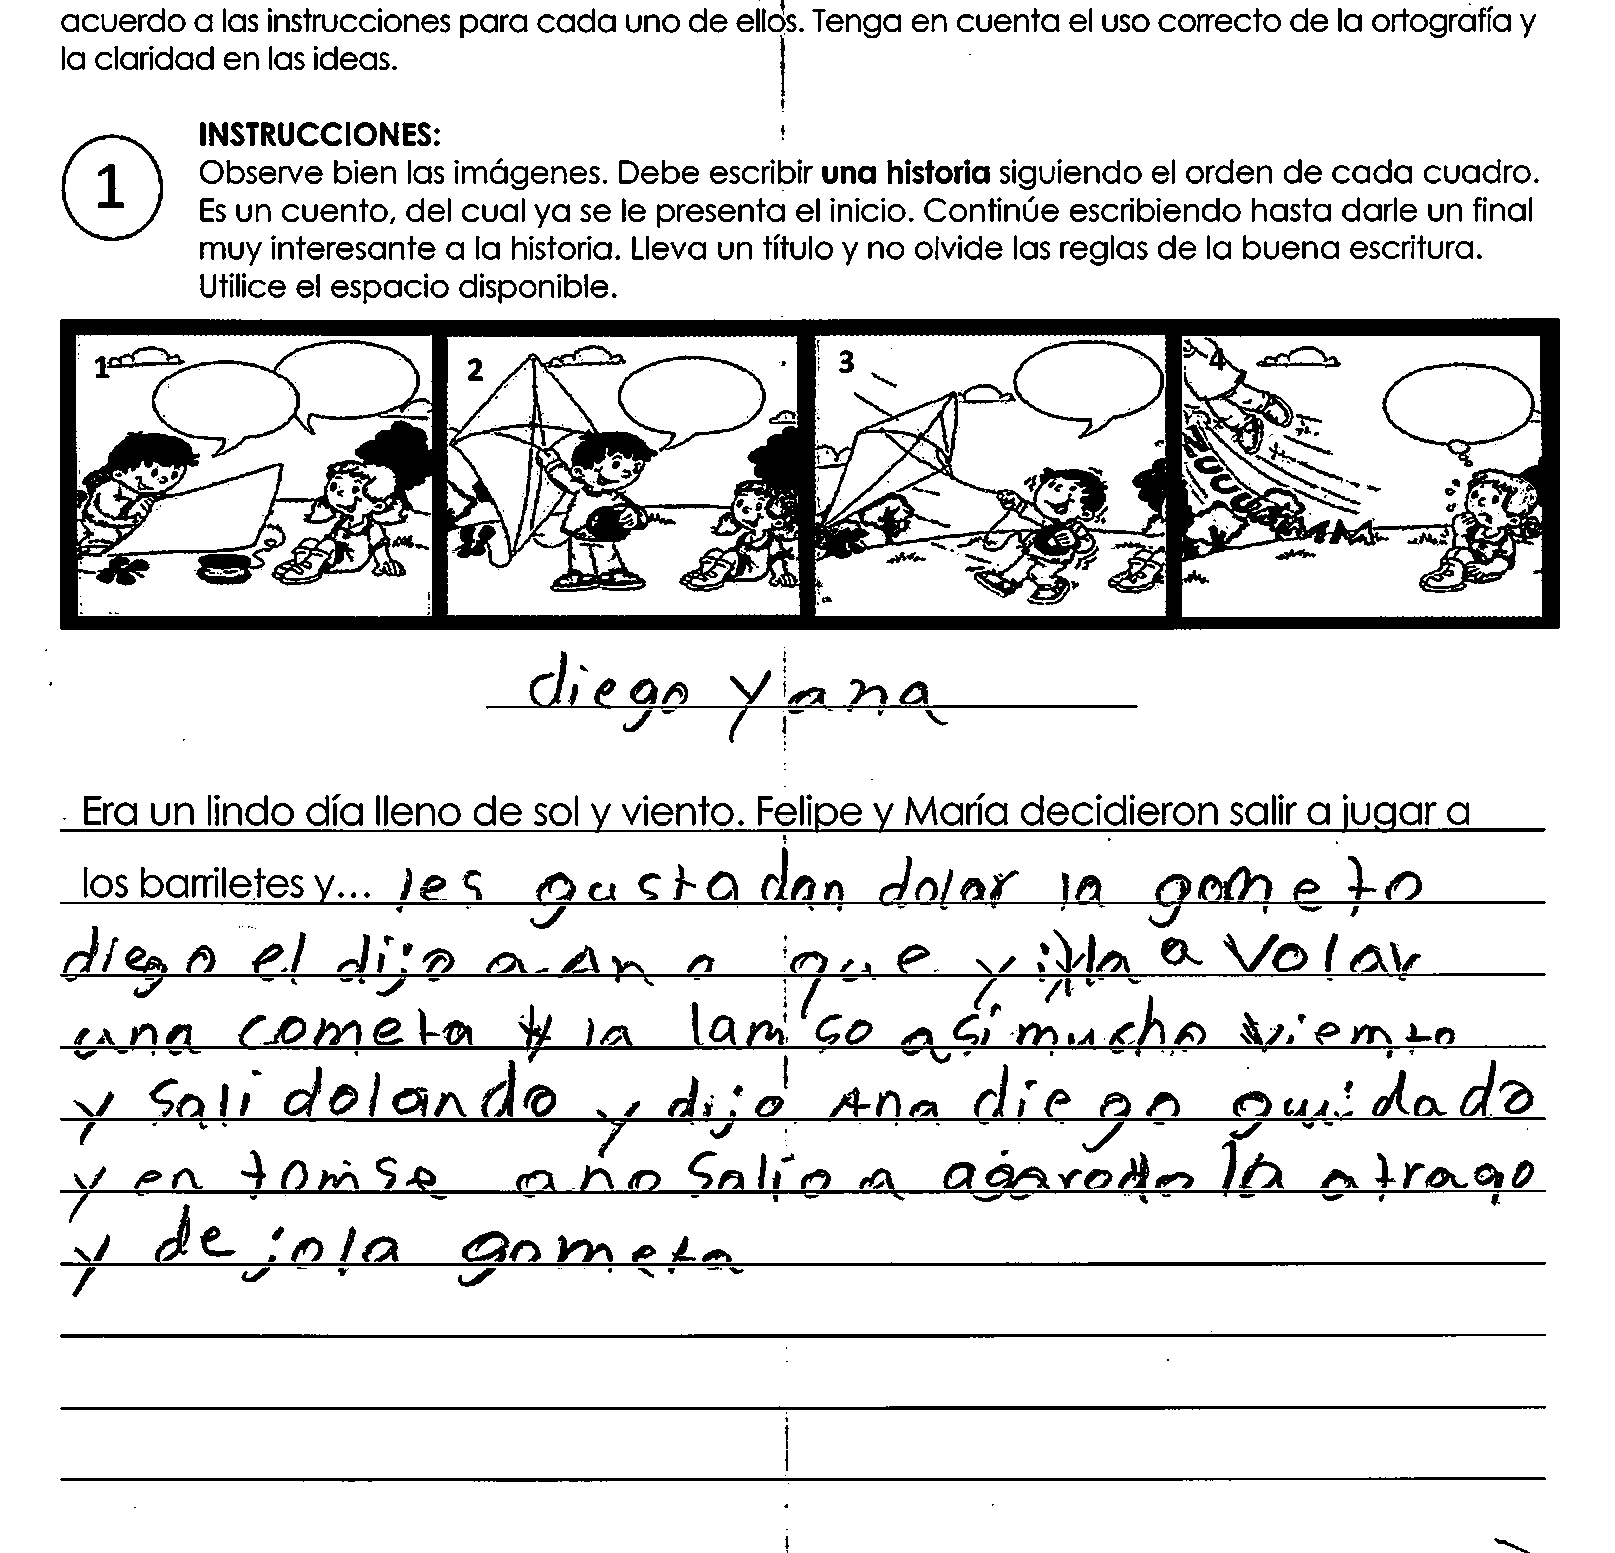 acuerdo a las instrucciones para cada uno de ellos. Tenga en cuenta el uso correcto de la ortografía y
la claridad en las ideas.
1
INSTRUCCIONES:
Observe bien las imágenes. Debe escribir una historia siguiendo el orden de cada cuadro.
Es un cuento, del cual ya se le presenta el inicio. Continúe escribiendo hasta darle un final
muy interesante a la historia. Lleva un título y no olvide las reglas de la buena escritura.
Utilice el espacio disponible.
1 2 3 4
diego y ana
Era un lindo día lleno de sol y viento. Felipe y María decidieron salir a jugar a
los barriletes y... les gustadan dolar la gometo
diego el dijo a Ana que a volar
una cometa la lamso así mucho viemto
y sali dolando y dijo Ana diego guidado
y en tomse ano salio a la atrago
y dejo la gometa